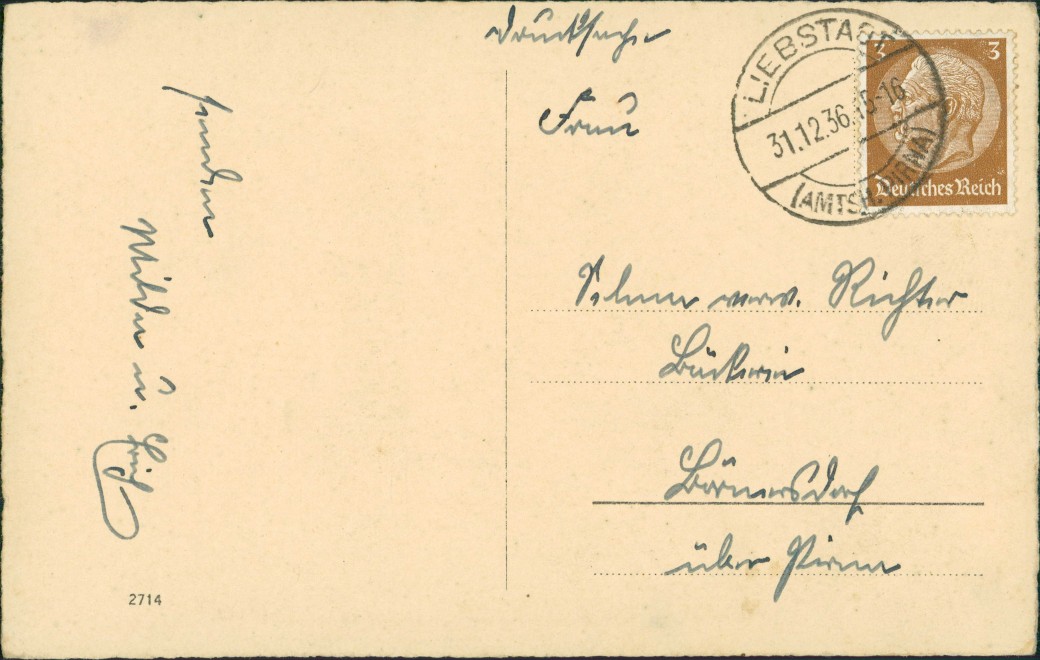 senden
Milda u. Erich
2714
Drucksache
Frau
Selma verw. Richter
Bäckerei
Börnersdorf
über Pirna
LIEBSTADT
31.12.36.15-16
(AMTSH. PIRNA)
3 3
Deutsches Reich